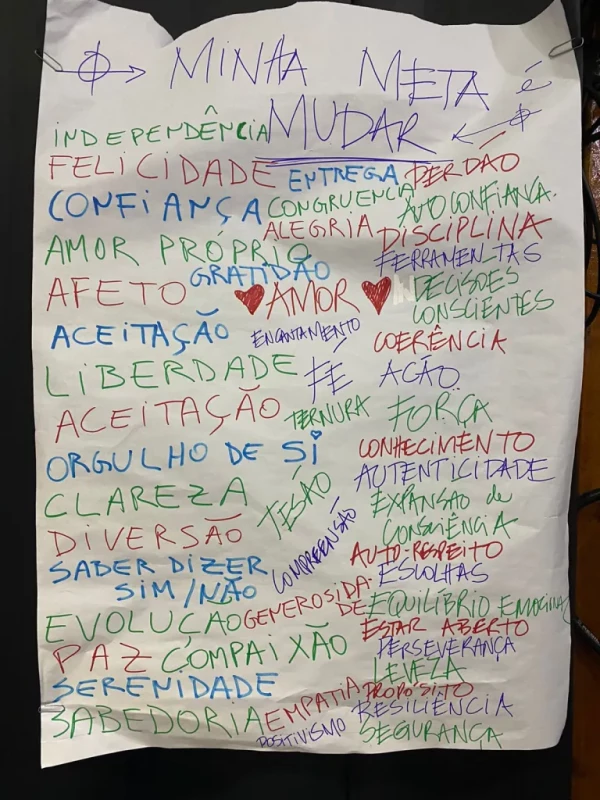 MINHA META É
MUDAR
INDEPENDÊNCIA
FELICIDADE ENTREGA PERDÃO
CONFIANÇA CONGRUENCIA AUTOCONFIANÇA
ALEGRIA DISCIPLINA
AMOR PRÓPRIO FERRAMENTAS
GRATIDÃO DECISÕES
AFETO AMOR CONSCIENTES
ACEITAÇÃO ENCANTAMENTO COERÊNCIA
LIBERDADE FÉ AÇÃO
ACEITAÇÃO TERNURA FORÇA
ORGULHO DE SI CONHECIMENTO
AUTENTICIDADE
CLAREZA TESÃO EXPANSÃO de
DIVERSÃO COMPREENSÃO CONSCIÊNCIA
SABER DIZER AUTO-RESPEITO
SIM/NÃO ESCOLHAS
EVOLUÇÃO GENEROSIDA
DE EQUILÍBRIO EMOCINAL
PAZ COMPAIXÃO ESTAR ABERTO
PERSEVERANÇA
SERENIDADE LEVEZA
SABEDORIA EMPATIA PROPÓSITO
RESILIÊNCIA
POSITIVISMO SEGURANÇA